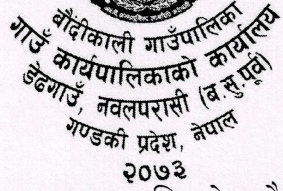 बौंदीकाली गाउँपालिका
गाउँ कार्यपालिकाको कार्यालय
डेढगाउँ, नवलपरासी (ब.सु.पूर्व)
गण्डकी प्रदेश, नेपाल
२०७३